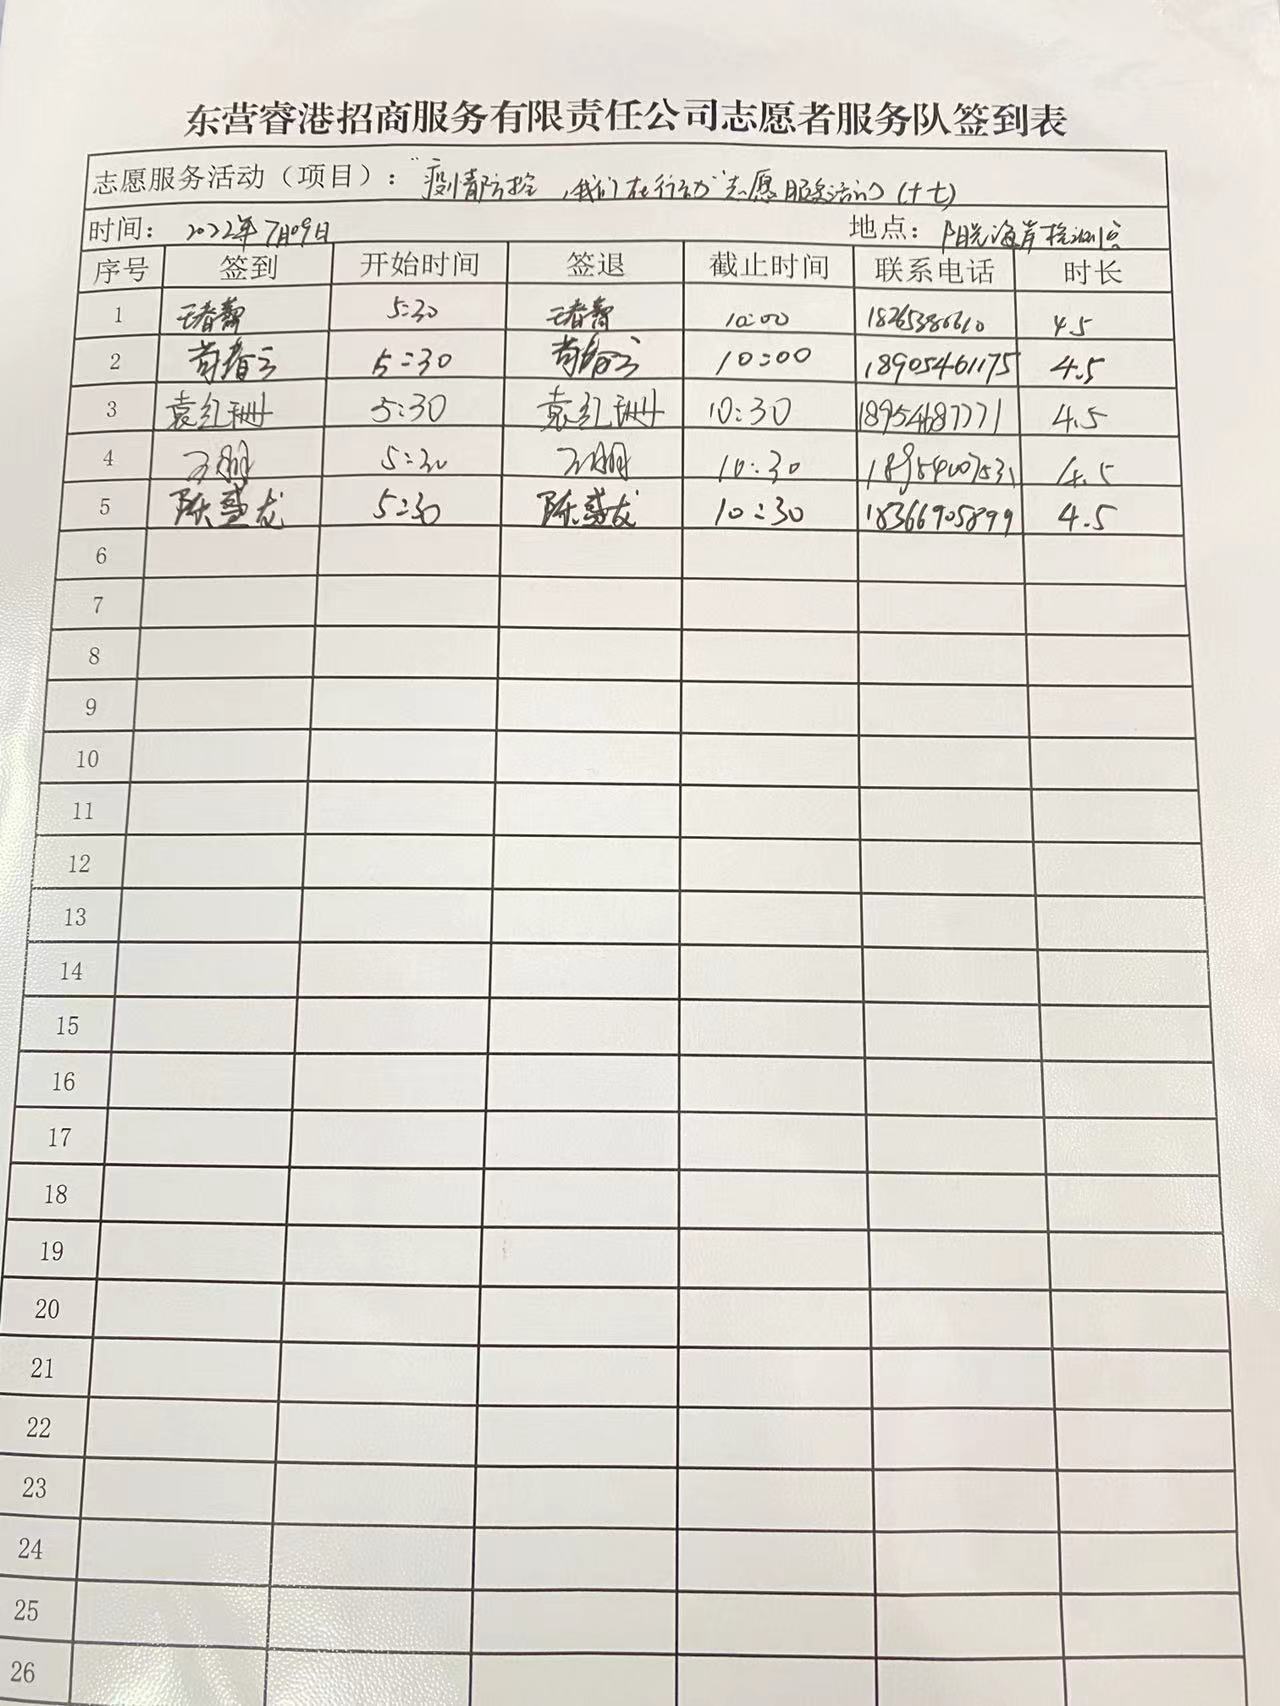 东营睿港招商服务有限责任公司志愿者服务队签到表
志愿服务活动（项目）：“疫情防控，我们在行动”志愿服务活动（十七）
时间： 2022年7月09日 地点： 阳光海岸检测点
序号 签到 开始时间 签退 截止时间 联系电话 时长
1 5:30 10:00 18265386610 4.5
2 5:30 10:00 18905461175 4.5
3 袁红珊 5:30 袁红珊 10:30 18954687771 4.5
4 王朋 5:30 王朋 10:30 18954007531 4.5
5 陈盛龙 5:30 陈盛龙 10:30 18366905899 4.5
6
7
8
9
10
11
12
13
14
15
16
17
18
19
20
21
22
23
24
25
26